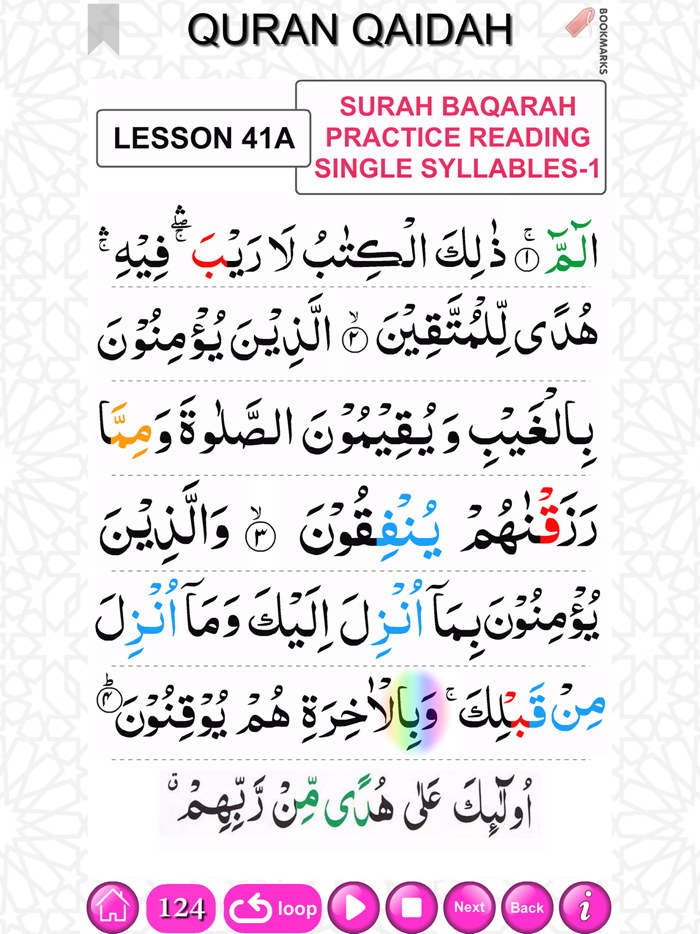 QURAN QAIDAH
BOOKMARKS
LESSON 41A
SURAH BAQARAH
PRACTICE READING
SINGLE SYLLABLES-1
الٓمّٓ ۚ ۝١ ذٰلِكَ الْكِتٰبُ لَا رَيْبَ ۛۖۚ فِيْهِ ۛۚ
هُدًى لِّلْمُتَّقِيْنَ ۙ ۝٢ الَّذِيْنَ يُؤْمِنُوْنَ
بِالْغَيْبِ وَيُقِيْمُوْنَ الصَّلٰوةَ وَمِمَّا
رَزَقْنٰهُمْ يُنْفِقُوْنَ ۙ ۝٣ وَالَّذِيْنَ
يُؤْمِنُوْنَ بِمَآ اُنْزِلَ اِلَيْكَ وَمَآ اُنْزِلَ
مِنْ قَبْلِكَ ۚ وَبِالْاٰخِرَةِ هُمْ يُوْقِنُوْنَ ؕ ۝٤
اُولٰٓئِكَ عَلٰى هُدًى مِّنْ رَّبِّهِمْ ۗ
124 loop Next Back i